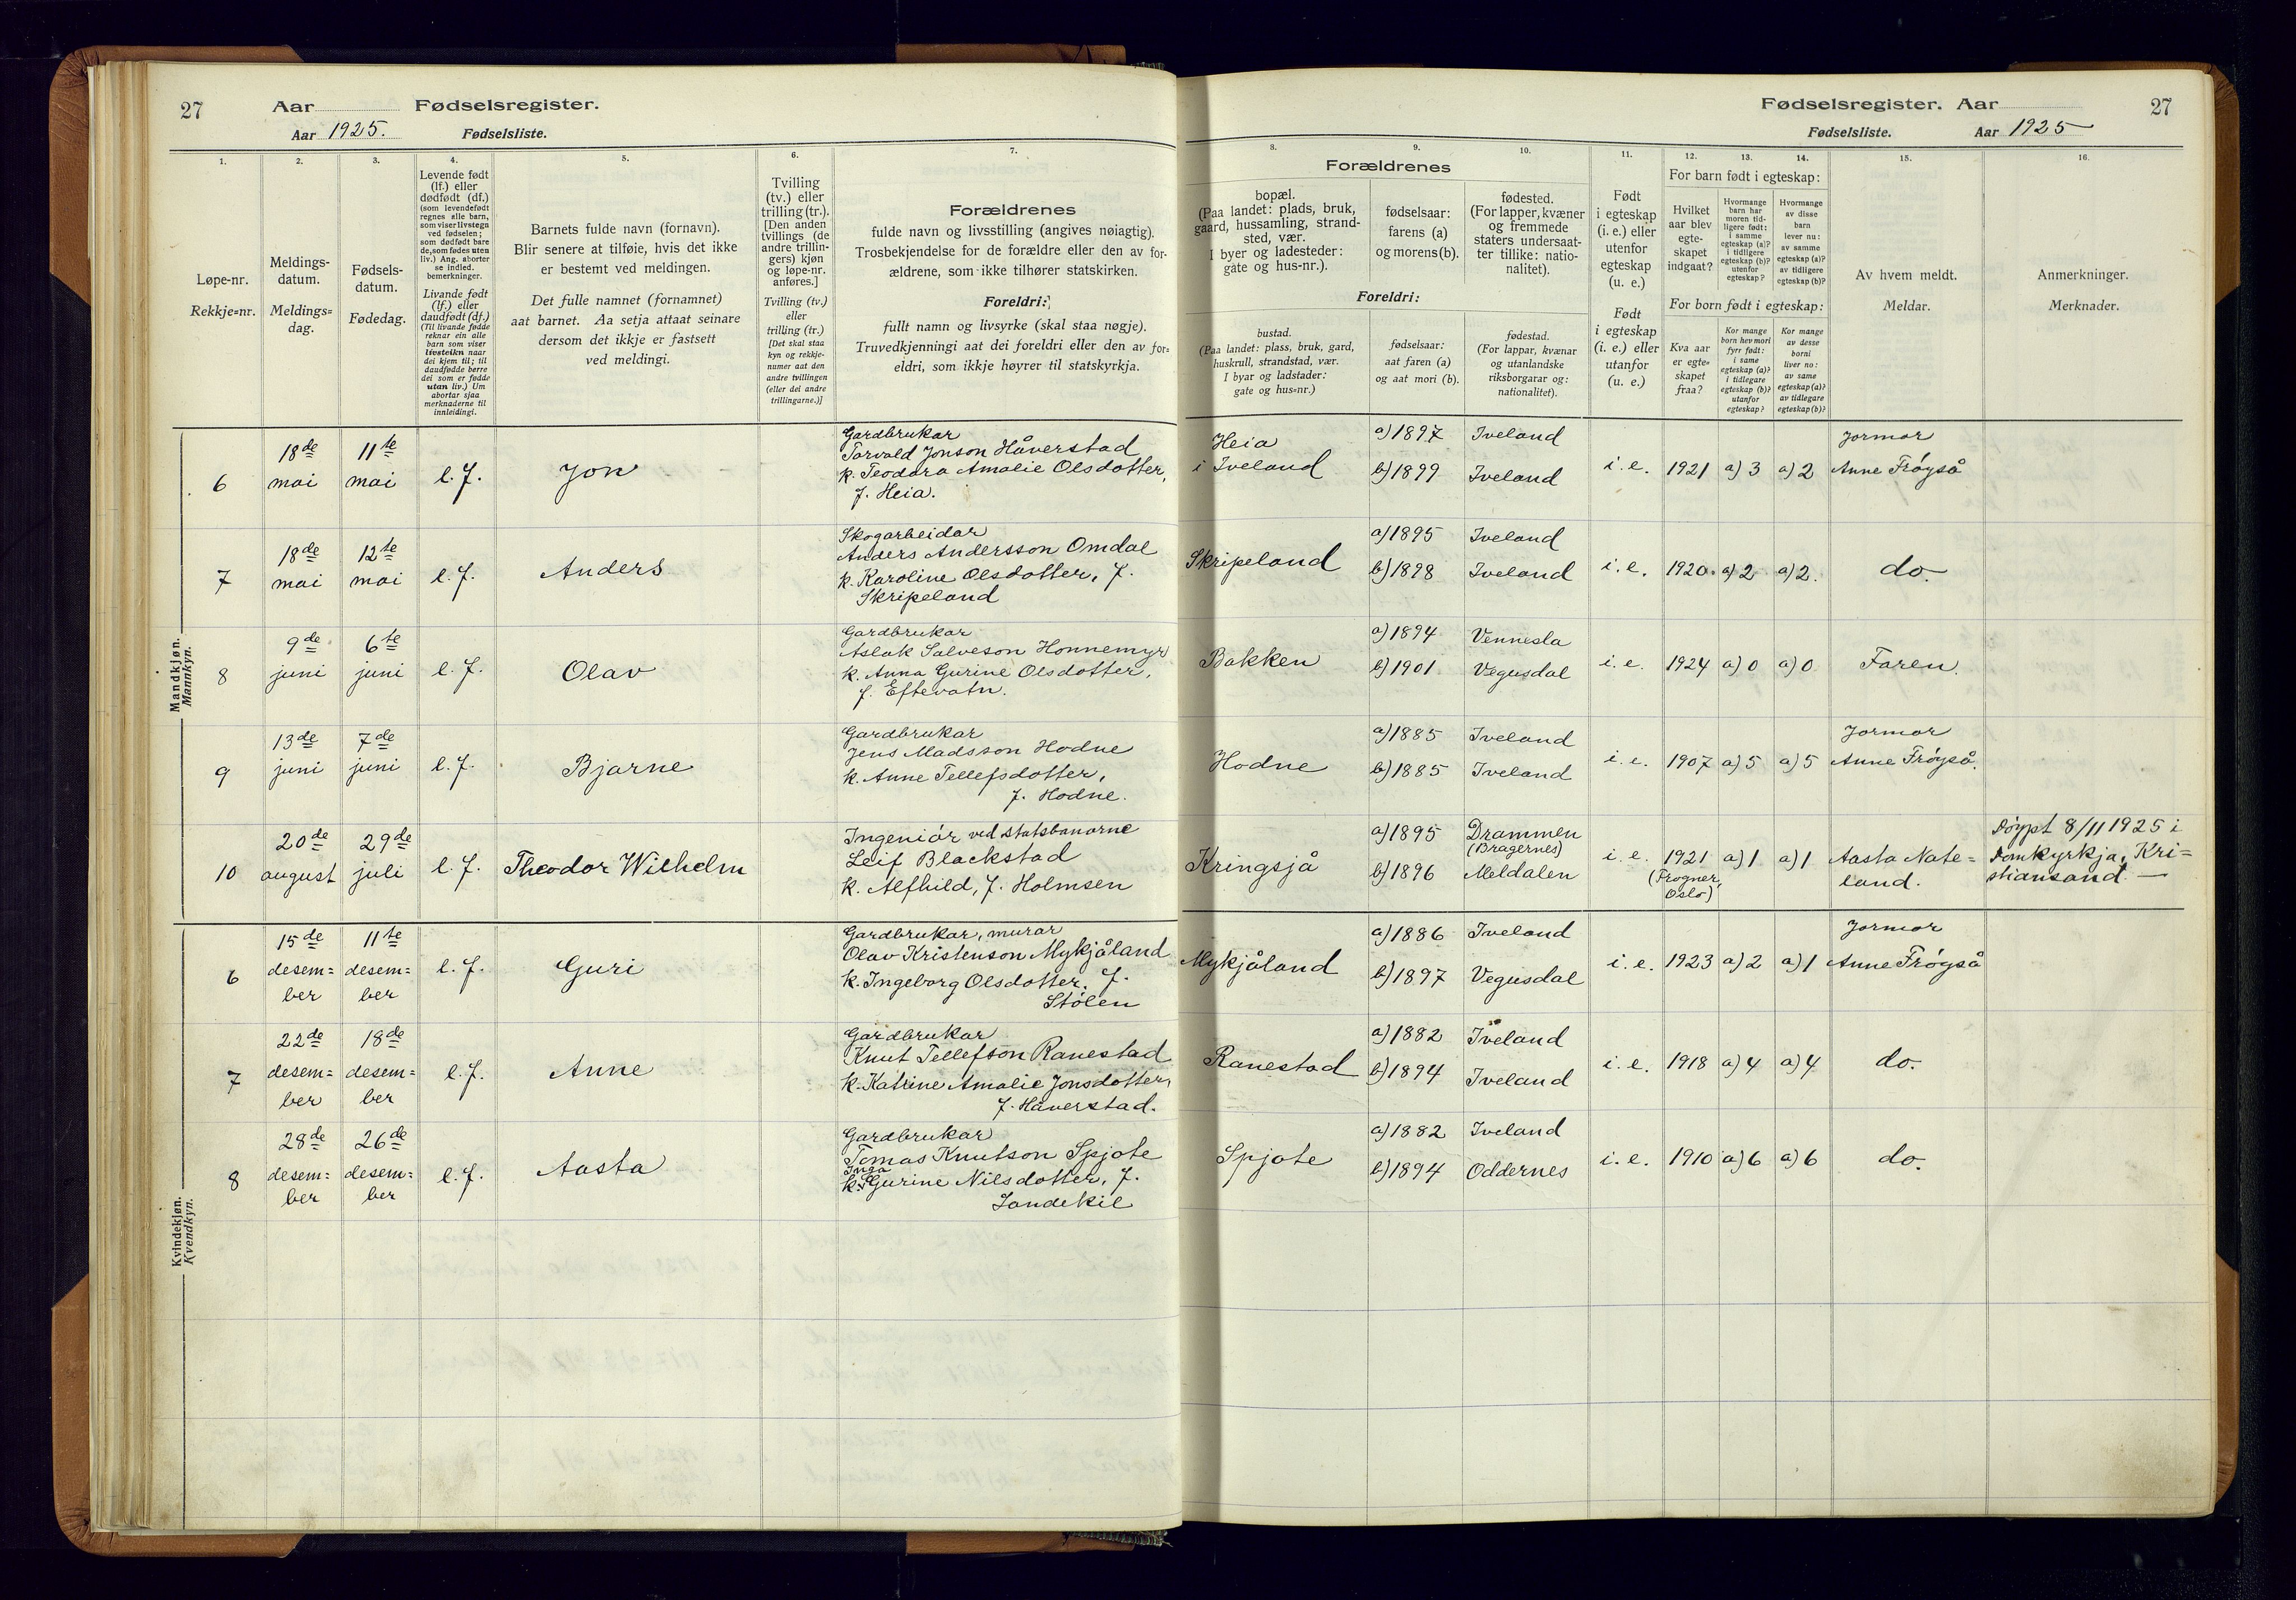 27 Aar Fødselsregister.
Aar 1925. Fødselsliste.
Fødselsregister. Aar 27
Fødselsliste. Aar 1925
1. 2. 3. 4. 5. 6. 7.
Løpe-nr.
Rekkje=nr.
Meldings-
datum.
Meldings=
dag.
Fødsels-
datum.
Fødedag.
Levende født
(lf.) eller
dødfødt (df.)
(som levendefødt
regnes alle barn,
som viser livstegn
ved fødselen;
som dødfødt bare
de, som fødes uten
liv.) Ang. aborter
se indled.
bemerkninger.
Livande født
(lf.) eller
daudfødt (df.)
(Til livande fødde
reknar ein alle
barn som viser
livsteikn naar
dei kjem til; til
daudfødde berre
dei som er fødde
utan liv.) Um
abortar sjaa
merknaderne til
innleidingi.
Barnets fulde navn (fornavn).
Blir senere at tilføie, hvis det ikke
er bestemt ved meldingen.
Det fulle namnet (fornamnet)
aat barnet. Aa setja attaat seinare
dersom det ikkje er fastsett
ved meldingi.
Tvilling
(tv.) eller
trilling (tr.).
[Den anden
tvillings (de
andre trillin-
gers) kjøn
og løpe-nr.
anføres.]
Tvilling (tv.)
eller
trilling (tr.)
[Det skal staa
kyn og rekkje-
numer aat den
andre tvillingen
(eller dei andre
trillingarne.)]
Forældrenes
fulde navn og livsstilling (angives nøiagtig).
Trosbekjendelse for de forældre eller den av for-
ældrene, som ikke tilhører statskirken.
Foreldri:
fullt namn og livsyrke (skal staa nøgje).
Truvedkjenningi aat dei foreldri eller den av for=
eldri, som ikkje høyrer til statskyrkja.
8. 9. 10. 11. 12. 13. 14. 15. 16.
Forældrenes
bopæl.
(Paa landet: plads, bruk,
gaard, hussamling, strand-
sted, vær.
I byer og ladesteder:
gate og hus-nr.).
fødselsaar:
farens (a)
og morens (b).
fødested.
(For lapper, kvæner
og fremmede
staters undersaat-
ter tillike: natio-
nalitet).
Foreldri:
bustad.
(Paa landet: plass, bruk, gard,
huskrull, strandstad, vær.
I byar og ladstader:
gate og hus=nr.)
fødselsaar:
aat faren (a)
og aat mori (b).
fødestad.
(For lappar, kvænar
og utanlandske
riksborgarar og:
nationalitet).
Født
i egteskap
(i. e.) eller
utenfor
egteskap
(u. e.)
Født
i egteskap
(i. e.) eller
utanfor
(u. e.)
For barn født i egteskap:
Hvilket
aar blev
egte-
skapet
indgaat?
Hvormange
barn har
moren tid-
ligere født:
i samme
egteskap (a)?
i tidligere
egteskap (b)?
utenfor
egteskap?
Hvormange
av disse
barn
lever nu:
av samme
egteskap (a)?
av tidligere
egteskap (b)?
For born født i egteskap:
Kva aar
er egte-
skapet
fraa?
Kor mange
born hev mori
fyrr født:
i same
egteskap (a)?
i tidlegare
egteskap (b)?
utanfor
egteskap?
Kor mange
av desse
borni
liver no:
av same
egteskap (a)?
av tidlegare
egteskap (b)?
Av hvem meldt.
Meldar.
Anmerkninger.
Merknader.
Mandkjøn.
Mannkyn.
6
18de
mai
11te
mai
l. f.
Jon
Gardbrukar
Torvald Jonson Håverstad
k. Teodora Amalie Olsdotter,
f. Heia.
Heia
i Iveland
a) 1897 Iveland
b) 1899 Iveland
i. e. 1921 a) 3 a) 2
Jormor
Anne Frøyså
7
18de
mai
12te
mai
l. f.
Anders
Skogarbeidar
Anders Andersson Omdal
k. Karoline Olsdotter, f.
Skripeland
Skripeland
a) 1895 Iveland
b) 1898 Iveland
i. e. 1920. a) 2 a) 2.
do.
8
9de
juni
6te
juni
l. f.
Olav
Gardbrukar
Aslak Salveson Honnemyr
k. Anna Gurine Olsdotter,
f. Eftevatn.
Bakken
a) 1894 Vennesla
b) 1901 Vegusdal
i. e. 1924 a) 0 a) 0
Faren.
9
13de
juni
7de
juni
l. f.
Bjarne
Gardbrukar
Jens Madsson Hodne
k. Anne Tellefsdotter,
f. Hodne.
Hodne
a) 1885 Iveland
b) 1885 Iveland
i. e. 1907 a) 5 a) 5
Jormor
Anne Frøyså.
10
20de
august
29de
juli
l. f.
Theodor Wilhelm
Ingeniør ved statsbanorne
Leif Blackstad
k. Alfhild, f. Holmsen
Kringsjå
a) 1895 Drammen
(Bragernes)
b) 1896 Meldalen
i. e. 1921 a) 1 a) 1
(Frogner,
Oslo)
Aasta Nate=
land.
Døypt 8/11 1925 i
Domkyrkja, Kri=
stiansand. —
Kvindekjøn.
Kvendkyn.
6
15de
desem=
ber
11te
desem=
ber
l. f.
Guri
Gardbrukar, murar
Olav Kristenson Mykjåland
k. Ingeborg Olsdotter, f.
Stølen
Mykjåland
a) 1886 Iveland
b) 1897 Vegusdal
i. e. 1923 a) 2 a) 1
Jormor
Anne Frøyså
7
22de
desem=
ber
18de
desem=
ber
l. f.
Anne
Gardbrukar
Knut Tellefson Ranestad
k. Katrine Amalie Jonsdotter,
f. Håverstad.
Ranestad
a) 1882 Iveland
b) 1894 Iveland
i. e. 1918 a) 4 a) 4
do.
8
28de
desem=
ber
26de
desem=
ber
l. f.
Aasta
Gardbrukar
Tomas Knutson Spjote
Inga
k. Gurine Nilsdotter, f.
Sandekil
Spjote
a) 1882 Iveland
b) 1894 Oddernes
i. e. 1910 a) 6 a) 6
do.